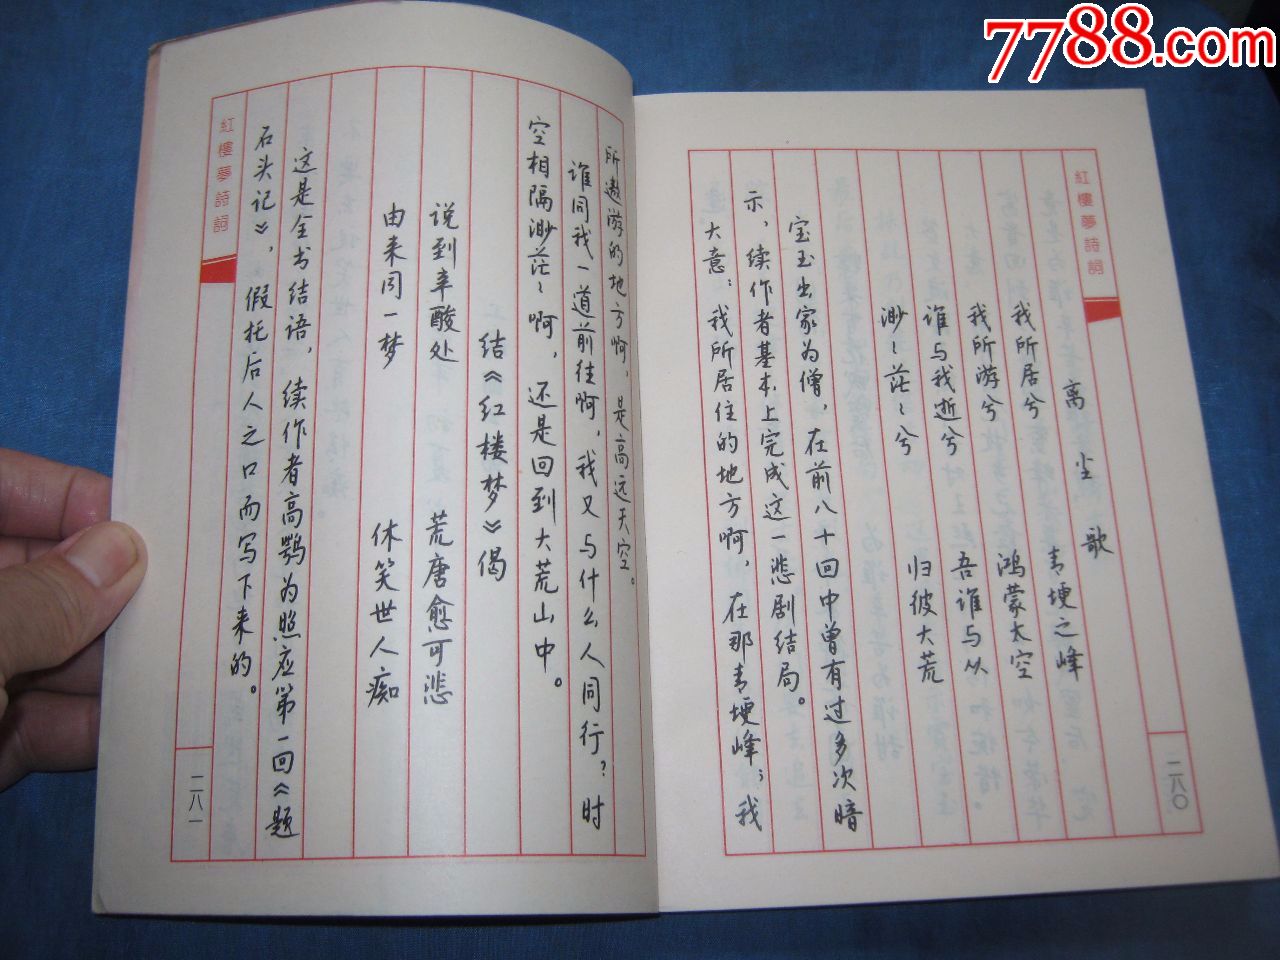 7788.com
紅樓夢詩詞
二八〇
离尘歌
我所居兮 青埂之峰
我所游兮 鸿蒙太空
谁与我逝兮 吾谁与从
渺渺茫茫兮 归彼大荒
宝玉出家为僧,在前八十回中曾有过多次暗
示,续作者基本上完成这一悲剧结局。
大意:我所居住的地方啊,在那青埂峰;我
所遨游的地方啊,是高远天空。
谁同我一道前往啊,我又与什么人同行?时
空相隔渺茫茫啊,还是回到大荒山中。
结《红楼梦》偈
说到辛酸处 荒唐愈可悲
由来同一梦 休笑世人痴
这是全书结语,续作者高鹗为照应第一回《题
石头记》,假托后人之口而写下来的。
紅樓夢詩詞
二八一